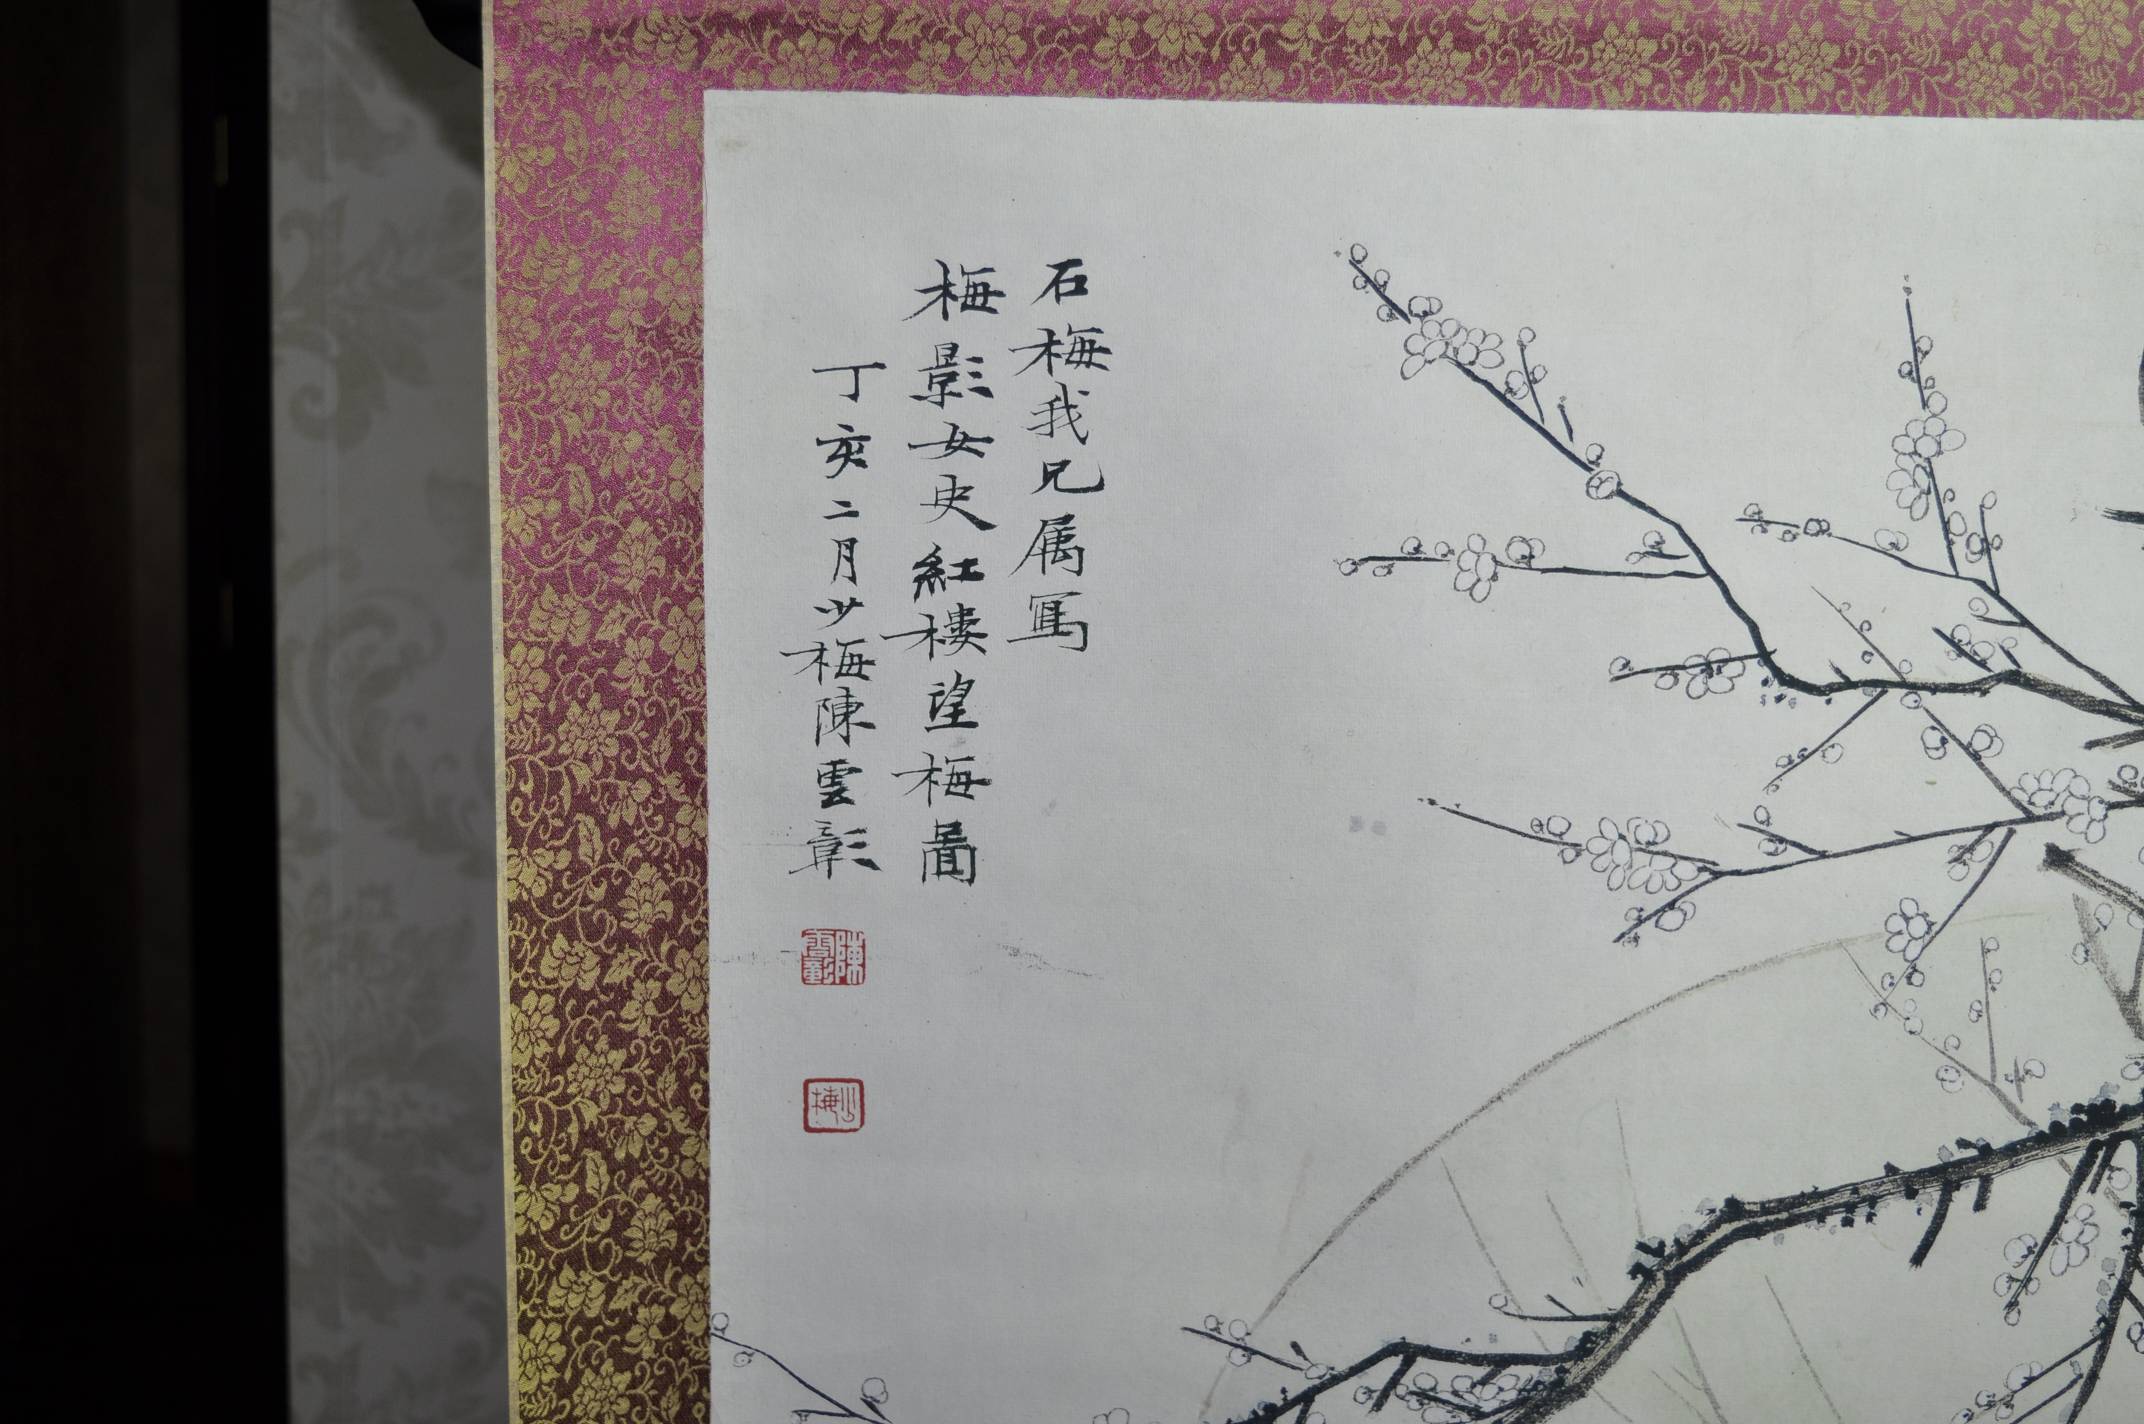 石梅我兄属冩
梅影女史紅樓望梅圖
丁亥二月少梅陳雲彰
陳雲彰
少梅